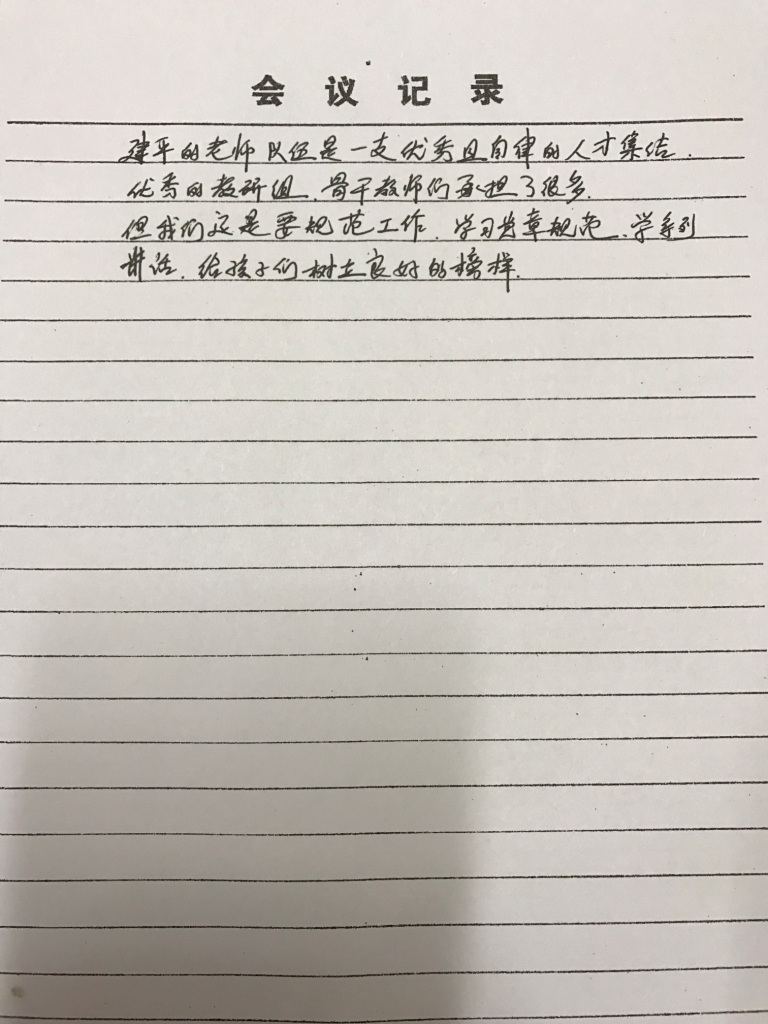 会议记录
建平的老师队伍是一支优秀且自律的人才集结.
优秀的教研组、骨干教师们承担了很多.
但我们还是要规范工作、学习党章规范、学系列
讲话、给孩子们树立良好的榜样.